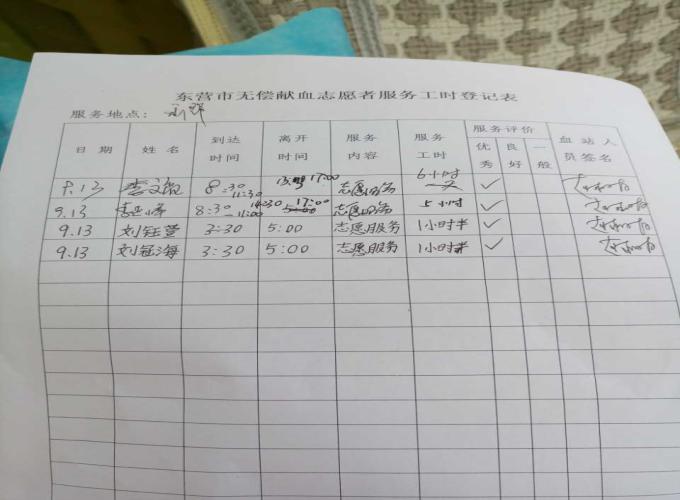 东营市无偿献血志愿者服务工时登记表
服务地点：
日期 姓名 到达时间 离开时间 服务内容 服务工时 服务评价 优秀 良好 一般 血站人员签名
9.13 8:30 11:30 17:00 志愿服务 6小时 一天 ✓
9.13 8:30 11:00 14:30 17:00 5:00 志愿服务 5小时 ✓
9.13 刘钰萱 3:30 5:00 志愿服务 1小时半 ✓
9.13 刘钰海 3:30 5:00 志愿服务 1小时半 ✓